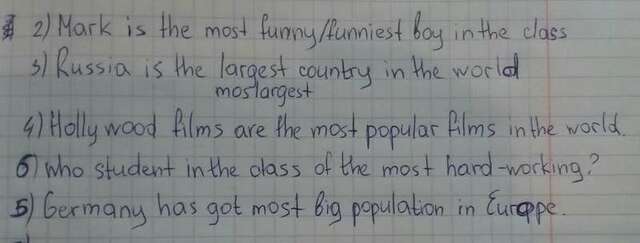 2) Mark is the most funny/funniest boy in the class
3) Russia is the largest country in the world
most largest
4) Hollywood films are the most popular films in the world.
6) Who student in the class of the most hard-working?
5) Germany has got most big population in Europe.